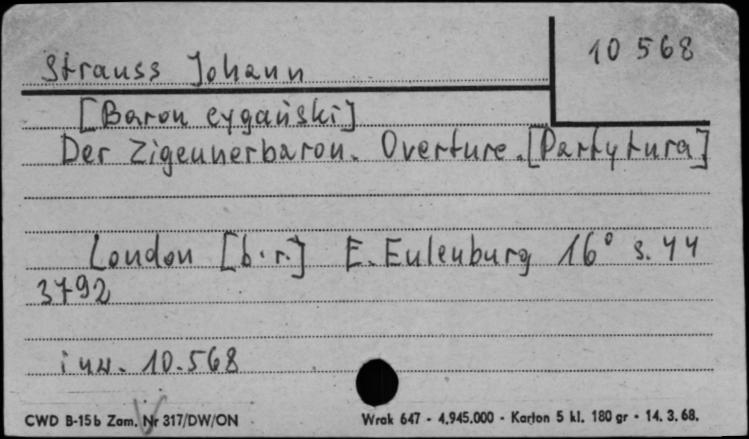 10 568
Strauss Johann
[Baron cygański]
Der Zigeunerbaron. Overture. [Partytura]
London [b.r.] E. Eulenburg 16° s. 44
3792
inw. 10.568
CWD B-15b Zam. Nr 317/DW/ON Wrak 647 - 4.945.000 - Karton 5 kl. 180 gr - 14. 3. 68.